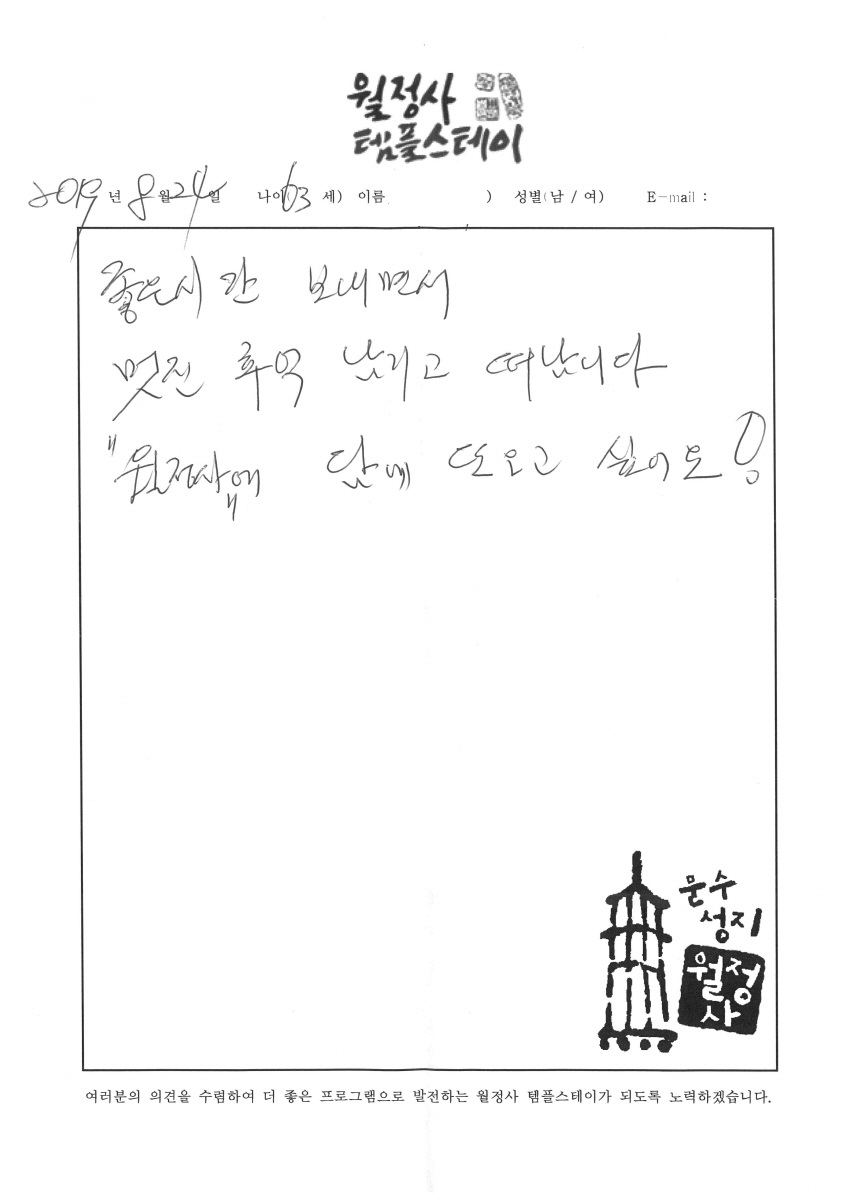 월정사
템플스테이
2019 년 8 월 24 일 나이( 63 세) 이름 ) 성별(남 / 여) E-mail :
좋은시간 보내면서
멋진 추억 남기고 떠납니다
"월정사"에 담에 또오고 싶어요!
문수
성지
월정
사
여러분의 의견을 수렴하여 더 좋은 프로그램으로 발전하는 월정사 템플스테이가 되도록 노력하겠습니다.